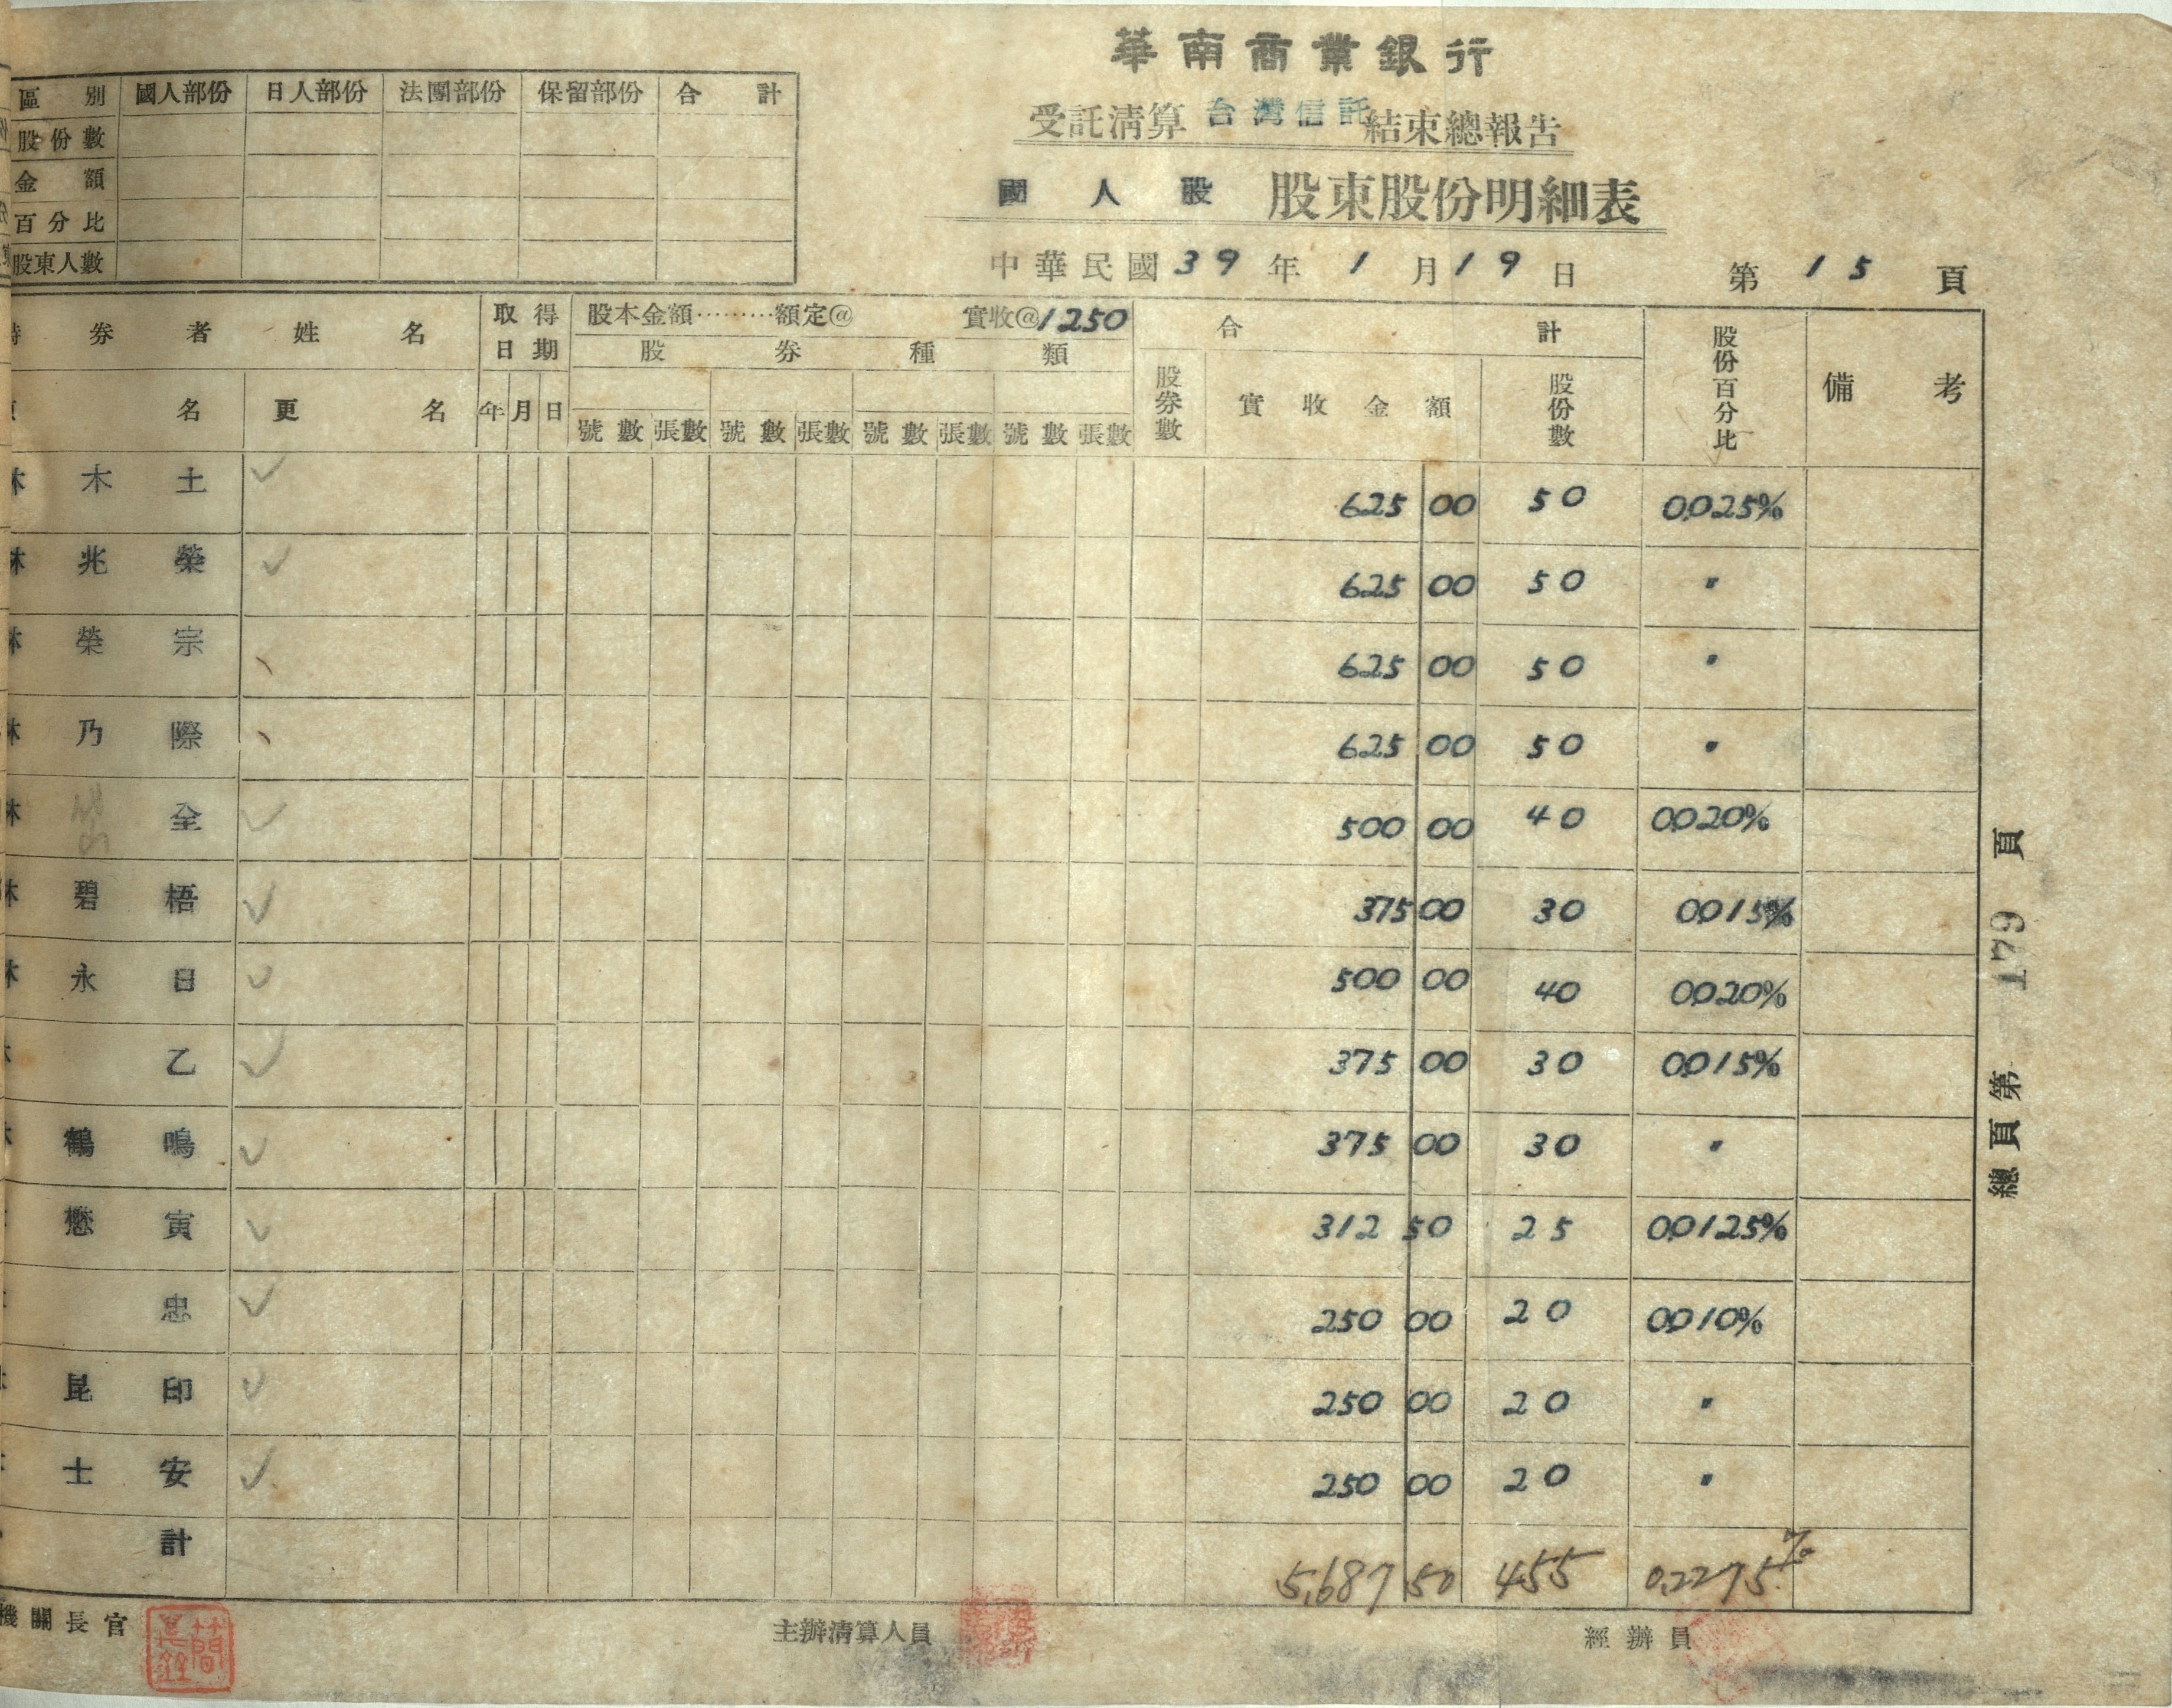 華南商業銀行
受託清算 台灣信託 結束總報告
國人股 股東股份明細表
中華民國39年1月19日 第15頁
區別 國人部份 日人部份 法團部份 保留部份 合計
股份數
金額
百分比
股東人數
券者姓名 取得日期 股本金額………額定@ 實收@1250 合計 股份百分比 備考
股券種類
名 更名 年 月 日 號數 張數 號數 張數 號數 張數 號數 張數 股券數 實收金額 股份數
林木土 625 00 50 0.025%
林兆榮 625 00 50 〃
林榮宗 625 00 50 〃
林乃際 625 00 50 〃
林 全 500 00 40 0.020%
林碧梧 375 00 30 0.015%
林永日 500 00 40 0.020%
乙 375 00 30 0.015%
鶴鳴 375 00 30 〃
懋寅 312 50 25 0.0125%
忠 250 00 20 0.010%
昆印 250 00 20 〃
士安 250 00 20 〃
計 5,687 50 455 0.2275%
機關長官 主辦清算人員 經辦員
總頁第 179 頁